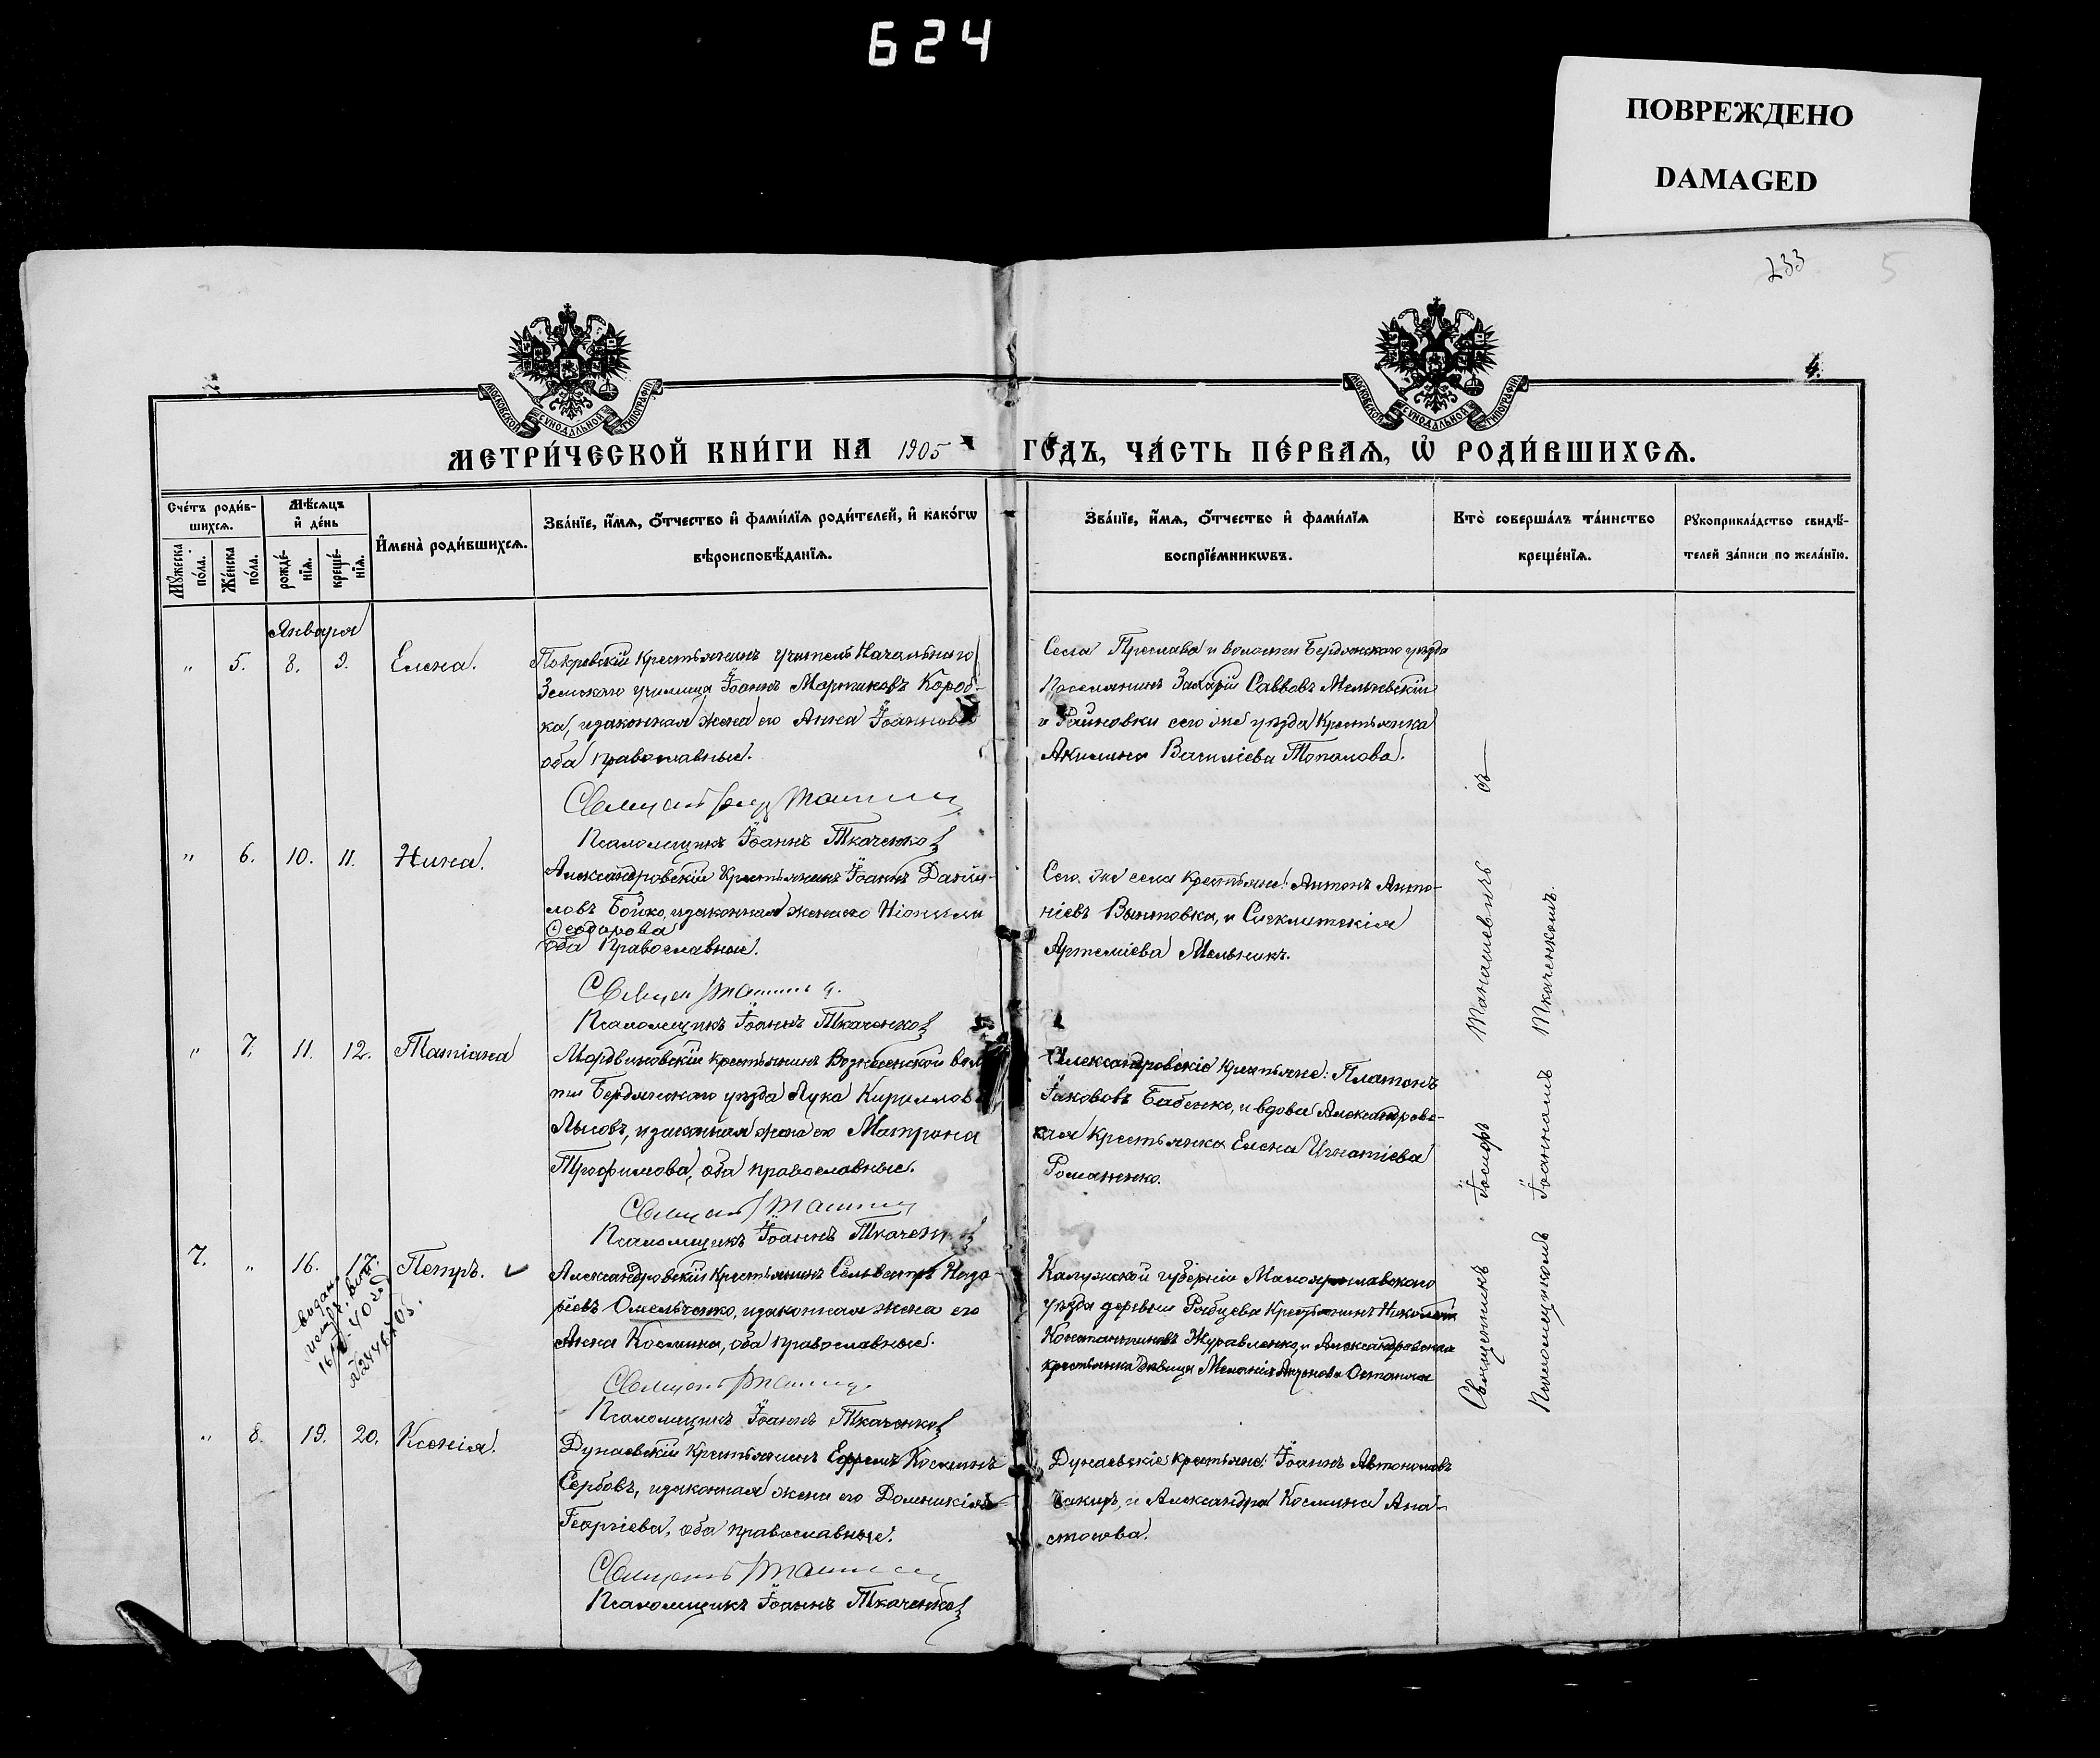 624
ПОВРЕЖДЕНО
DAMAGED
233
5
4.
МОСКОВСКОЙ СѴНОДАЛЬНОЙ ТИПОГРАФІИ
МОСКОВСКОЙ СѴНОДАЛЬНОЙ ТИПОГРАФІИ
МЕТРИ́ЧЕСКОЙ КНИ́ГИ НА 1905 ГО́ДЪ, ЧА́СТЬ ПЕ́РВАѦ, Ѡ҆ РОДИ́ВШИХСѦ.
Сче́тъ роди́в-
шихсѧ.
Мѣ́сѧцъ
и҆ де́нь
Мꙋ́жеска
по́ла.
Же́нска
по́ла.
рожде́-
нїѧ.
креще́-
нїѧ.
И҆мена̀ роди́вшихсѧ.
Зва́нїе, и҆́мѧ, ѻ҆́тчество и҆ фами́лїѧ роди́телей, и҆ како́гѡ
вѣроисповѣ́данїѧ.
Зва́нїе, и҆́мѧ, ѻ҆́тчество и҆ фами́лїѧ
воспрїе́мникѡвъ.
Кто̀ соверша́лъ та́инство
креще́нїѧ.
Рꙋкоприкла́дство свидѣ́-
телей за́писи по жела́нїю.
Января
" 5. 8. 9. Елена.
Покровскій крестьянинъ учитель Начальнаго
Земскаго училища Іоаннъ Мартиновъ Короб-
ка, и законная жена его Анна Іоаннова
оба православные.
Псаломщикъ Іоаннъ Ткаченко
Села Преслава и волости Бердянскаго уѣзда
Поселянинъ Захарій Саввовъ Мельчевскій
и Райновки сего же уѣзда Крестьянка
Акилина Василіева Тополова.
" 6. 10. 11. Нина.
Александровскій Крестьянинъ Іоаннъ Даніи-
ловъ Бойко, и законная жена его Ніонила
Ѳеодорова
оба Православные.
Псаломщикъ Іоаннъ Ткаченко
Сего же села крестьяне: Антонъ Анто-
ніевъ Винтовка, и Синклитикія
Артеміева Мельникъ.
" 7. 11. 12. Татіана
Мордвиновскій крестьянинъ Вознесенской вол
ти Бердянскаго уѣзда Лука Кирилловъ
Лысовъ, и законная жена его Матрона
Трофимова, оба православные.
Псаломщикъ Іоаннъ Ткаченко
Александровскіе крестьяне: Платонъ
Іакововъ Бабенко, и вдова Александровс-
кая крестьянка Елена Игнатіева
Романенко.
7. " 16. 17. Петръ.
Александровскій Крестьянинъ Сельвестръ Наза-
ріевъ Омельченко, и законная жена его
Анна Космина, оба православные.
Псаломщикъ Іоаннъ Ткаченко
Калужской губерніи Малоярославскаго
уѣзда деревни Рябцева Крестьянинъ Николай
Константиновъ Журавленко, и Александровская
крестьянка дѣвица Меланія
" 8. 19. 20. Ксенія.
Дунаевскій Крестьянинъ Ефремъ Косминъ
Сербовъ, и законная жена его Домникія
Георгіева, оба православные.
Псаломщикъ Іоаннъ Ткаченко
Дунаевскіе крестьяне: Іоаннъ Автономовъ
Чакиръ, и Александра Космина Ана-
стасова.
Священникъ Іосифъ Танашевичъ съ
Псаломщикомъ Іоанномъ Ткаченкомъ.